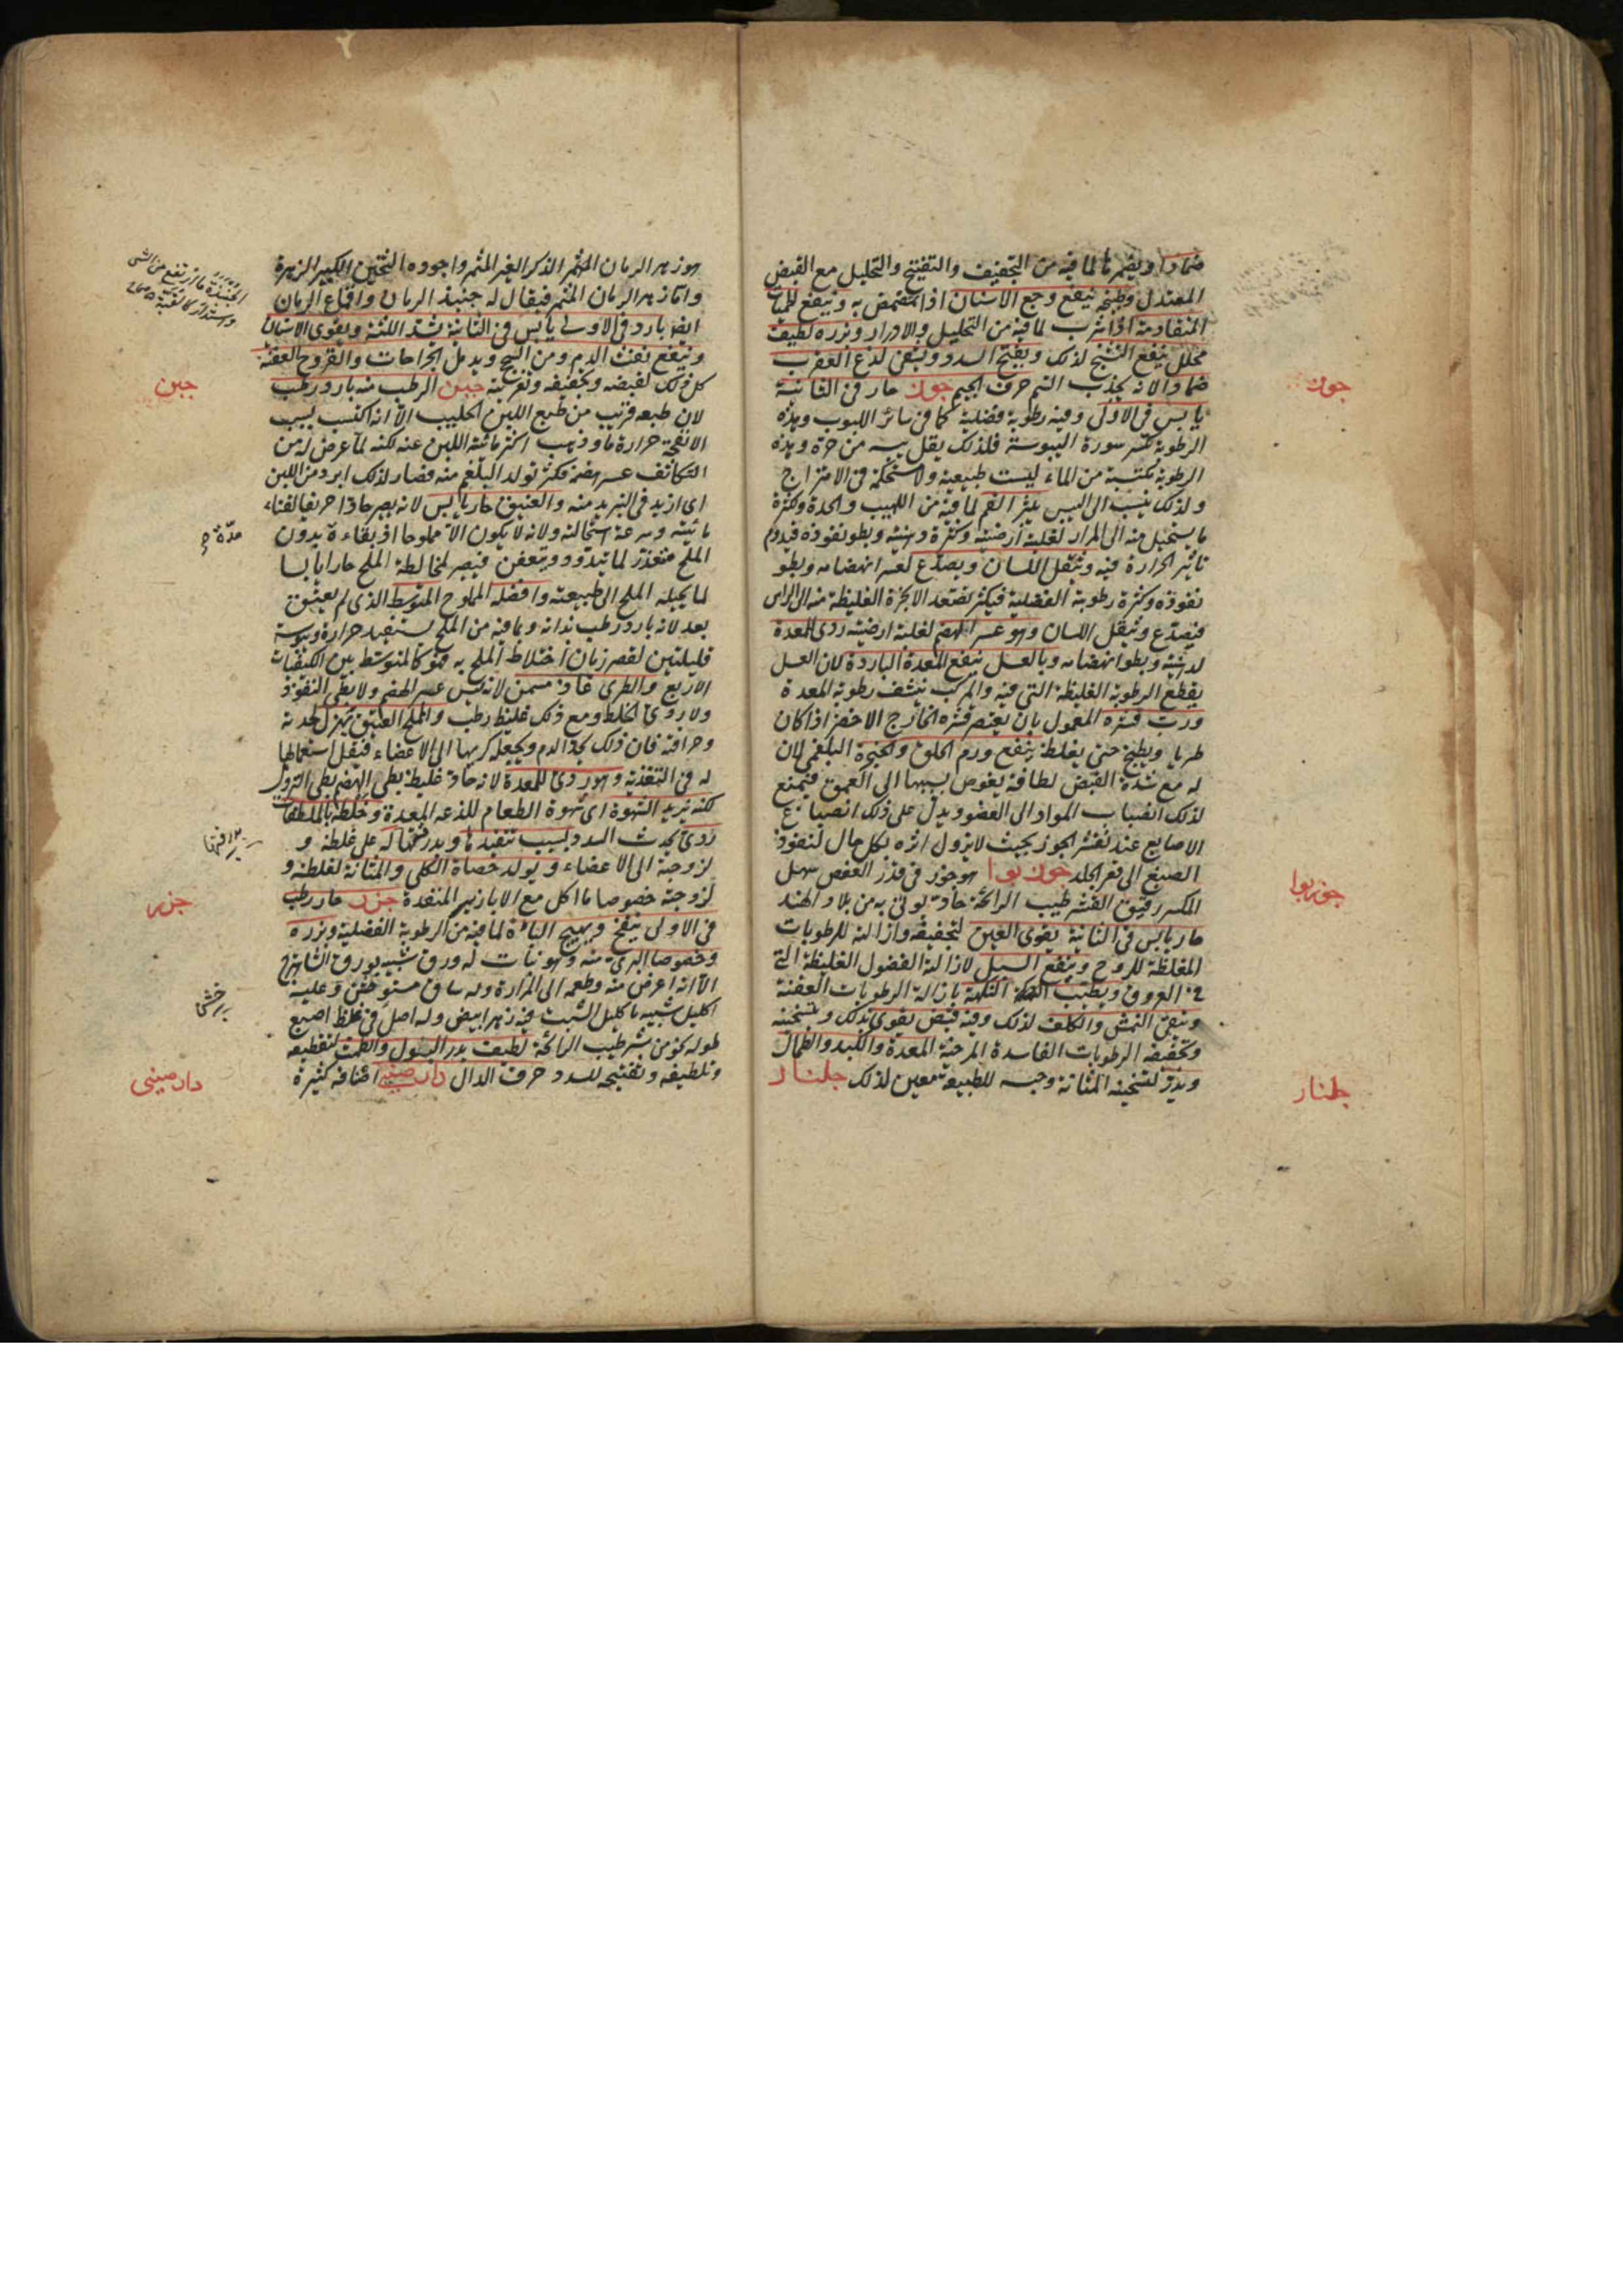 ضمادا ويضمر ها لما فيه من التجفيف والتفتيح والتحليل مع القبض
المعتدل وطبخه ينفع وجع الاسنان اذا تمضمض به وينفع للحميات
المتقادمة اذا شرب لما فيه من التحليل والادرار وبزره لطيف
محلل ينفع التشنج لذلك ويفتح السدد ويشفي لدغ العقرب
ضمادا لانه يجذب السم حرف الجيم جوز حار في الثانية
يابس في الاولى وفيه رطوبة فضلية كما في سائر اللبوب وهذه
الرطوبة تكسر سورة اليبوسة فلذلك يقل يبسه من حره وهذه
الرطوبة مكتسبة من الماء ليست طبيعية ولا مستحكمة في الامتزاج
ولذلك ينسب الى اليبس يبثر الفم لما فيه من اللهيب والحدة وكثرة
ما يستحيل منه الى المرار لغلبة ارضيته وكثرة دهنيته وبطو نفوذه فيدوم
تاثير الحرارة فيه ويثقل اللسان ويصدع لعسر انهضامه وبطو
نفوذه وكثرة رطوبته الفضلية فيكثر تصعد الابخرة الغليظة منه الى الراس
فيصدع ويثقل اللسان وهو عسر الهضم لغلبة ارضيته ردي للمعدة
لدهنيته وبطو انهضامه وبالعسل ينفع المعدة الباردة لان العسل
يقطع الرطوبة الغليظة التي فيه والمركب ينشف رطوبة المعدة
ورب قشره المعمول بان يعتصر قشره الخارج الاخضر اذا كان
طريا ويطبخ حتى يغلظ ينفع ورم الحلق والحنجرة البلغمي لان
له مع شدة القبض لطافة يغوص بسببها الى العمق فيمنع
لذلك انصباب المواد الى العضو ويدل على ذلك انصباغ
الاصابع عند تقشر الجوز بحيث لا يزول اثره بكل حال لنفوذ
الصبغ الى قعر الجلد جوز بوا هو جوز في قدر العفص سهل
المكسر رقيق القشر طيب الرائحة حاد يوتى به من بلاد الهند
حار يابس في الثانية يقوى العين لتجفيفه وازالته للرطوبات
المغلظة للروح وينفع السبل لازالة الفضول الغليظة التي
في العروق ويطيب النكهة بازالة الرطوبات العفنة
وينقي النمش والكلف لذلك وفيه قبض يقوى بذلك وبتسخينه
وتجفيفه الرطوبات الفاسدة المرخية المعدة والكبد والطحال
ويدر لتسخينه المثانة وحبسه للطبيعة معين لذلك جلنار
جوز
جوزبوا
جلنار
هو زهر الرمان الذكر الغير المثمر واجوده الثخين الكبير الزهرة
واما زهر الرمان المثمر فيقال له جنبذ الرمان واقماع الرمان
ايضا بارد في الاولى يابس في الثانية يشد اللثة ويقوى الاسنان
وينفع نفث الدم ومن السحج ويدمل الجراحات والقروح العفنة
كل ذلك لقبضه وتجفيفه وتغريته جبن الرطب منه بارد رطب
لان طبعه قريب من طبع اللبن الحليب الا انه اكتسب بسبب
الانفحة حرارة ما وذهب اكثر مائية اللبن عنه لكنه لما عرض له من
التكاثف عسر هضمه فكثر تولد البلغم منه فصار لذلك ابرد من اللبن
اى ازيد في التبريد منه والعتيق حار يابس لانه يصير حادا حريفا لفناء
مائيته وسرعة استحالته ولانه لا يكون الا مملوحا اذ بقاءه بدون
الملح متعذر لما يتدود ويتعفن فيصير لمخالطة الملح حارا يابسا
لما يحيله الملح الى طبيعته وافضله المملوح المتوسط الذي لم يعتق
بعد لانه بارد رطب بذاته وبما فيه من الملح يستفيد حرارة ويبوسة
قليلتين لقصر زمان اختلاط الملح به فهو كالمتوسط بين الكيفيات
الاربع والطرى غاذ مسمن لانه ليس عسر الهضم ولا بطى النفوذ
ولا ردى الخلط ومع ذلك غليظ رطب والملح العتيق يهزل لحدته
وحرافته فان ذلك يحد الدم ويجعله كريها الى الاعضاء فيقل استعمالها
له في التغذية وهو ردي للمعدة لانه حاد غليظ بطي الهضم بطي النزول
لكنه يزيد الشهوة اى شهوة الطعام للذعه المعدة وخلطه بالملطفات
ردي يحدث السدد بسبب تنفيذها وبدرقتها له على غلظه و
لزوجته الى الاعضاء ويولد حصاة الكلى والمثانة لغلظه و
لزوجته خصوصا ما اكل مع الابازير المنفذة جزر حار رطب
في الاولى ينفخ ويهيج الباءة لما فيه من الرطوبة الفضلية وبزره
وخصوصا البري منه وهو نبات له ورق شبيه بورق الشاهترج
الا انه اعرض منه وطعمه الى المرارة وله ساق مستو خشن وعليه
اكليل شبيه باكليل الشبت فيه زهر ابيض وله اصل في غلظ اصبع
طوله نحو من شبر طيب الرائحة لطيف يدر البول والطمث لتقطيعه
وتلطيفه وتفتيحه للسدد حرف الدال دار صيني اصنافه كثيرة
الجنبذة ما ارتفع من الشي
واستدار كالقبة
جبن
جزر
دار صيني